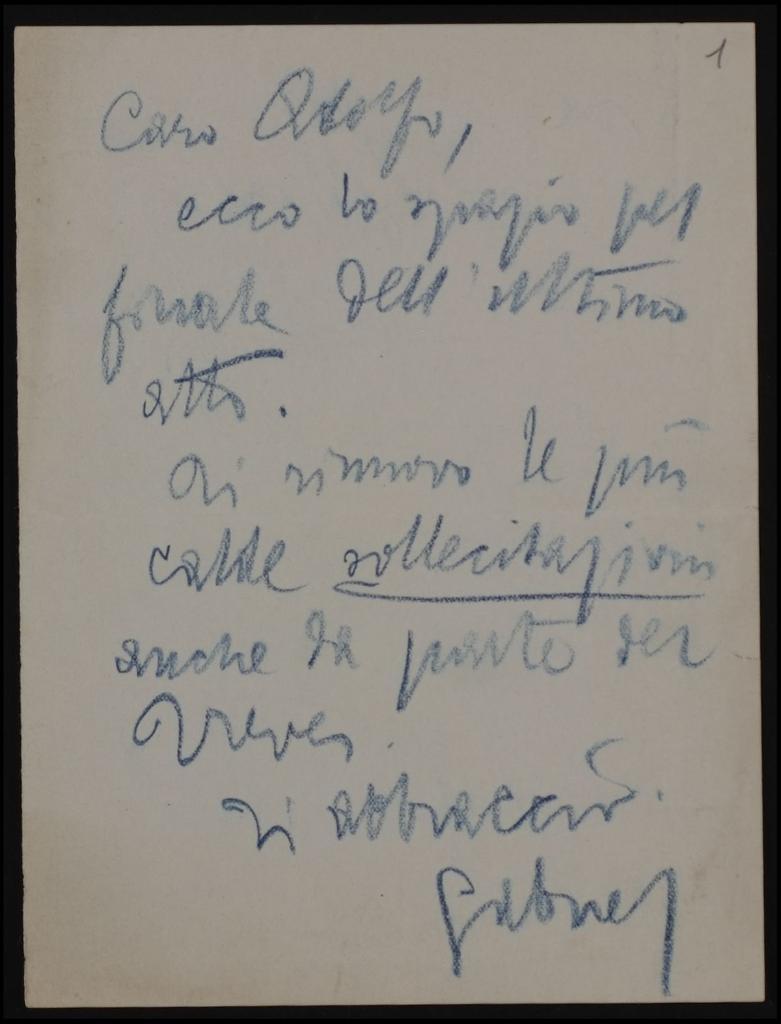 1
Caro Adolfo,
ecco lo spazio pel
finale dell'ultimo
atto.
Ti rinnovo le più
calde sollecitazioni
anche da parte dei
Treves.
Ti abbraccio.
Gabriel